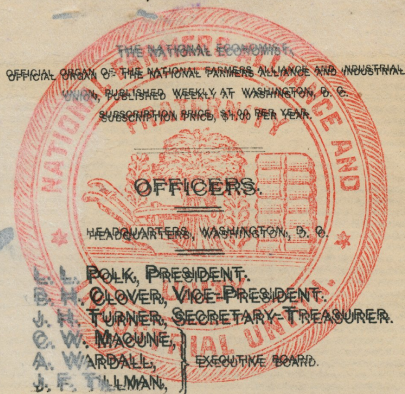 THE NATIONAL ECONOMIST,
OFFICIAL ORGAN OF THE NATIONAL FARMERS ALLIANCE AND INDUSTRIAL
UNION, PUBLISHED WEEKLY AT WASHINGTON, D. C.
SUBSCRIPTION PRICE, $1.00 PER YEAR.
OFFICERS.
HEADQUARTERS, WASHINGTON, D. C.
L. L. POLK, PRESIDENT.
B. H. CLOVER, VICE-PRESIDENT.
J. H. TURNER, SECRETARY-TREASURER.
C. W. MACUNE,
A. WARDALL,
J. F. TILLMAN,
EXECUTIVE BOARD.
NATIONAL FARMERS ALLIANCE AND
INDUSTRIAL UNION.